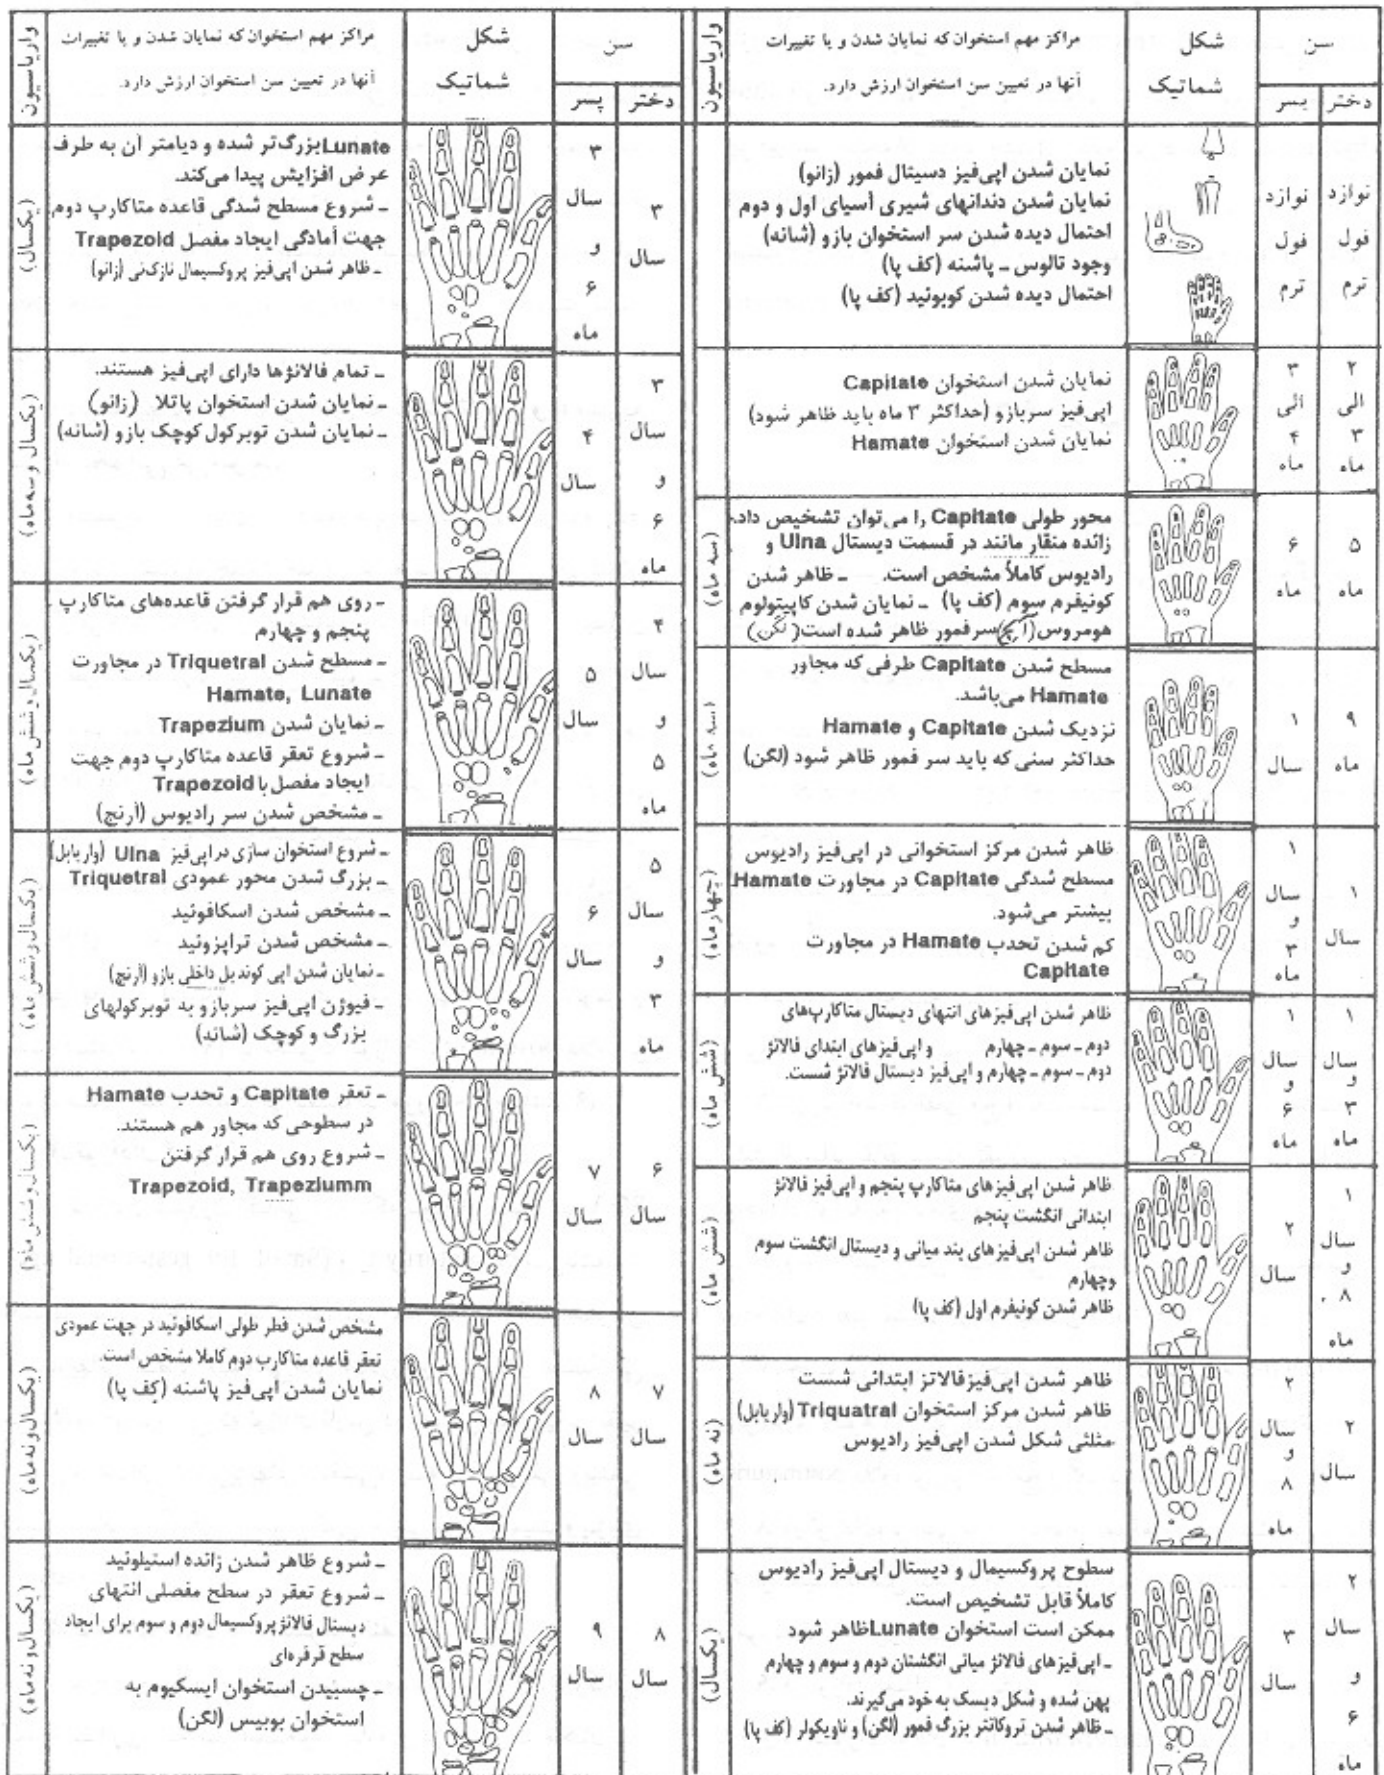 سن
دختر
پسر
شکل
شماتیک
مراکز مهم استخوان که نمایان شدن و یا تغییرات
آنها در تعیین سن استخوان ارزش دارد.
واریاسیون
نوازد
فول
ترم
نوازد
فول
ترم
نمایان شدن اپی‌فیز دسیتال فمور (زانو)
نمایان شدن دندانهای شیری آسیای اول و دوم
احتمال دیده شدن سر استخوان بازو (شانه)
وجود تالوس ـ پاشنه (کف پا)
احتمال دیده شدن کوبوئید (کف پا)
۲
الی
۳
ماه
۳
الی
۴
ماه
نمایان شدن استخوان Capitate
اپی‌فیز سربازو (حداکثر ۳ ماه باید ظاهر شود)
نمایان شدن استخوان Hamate
۵
ماه
۶
ماه
محور طولی Capitate را می‌توان تشخیص داد.
زائده منقار مانند در قسمت دیستال Ulna و
رادیوس کاملاً مشخص است. ـ ظاهر شدن
کونیفرم سوم (کف پا) ـ نمایان شدن کاپیتولوم
هومروس سرفمور ظاهر شده است (لگن)
(سه ماه)
۹
ماه
۱
سال
مسطح شدن Capitate طرفی که مجاور
Hamate می‌باشد.
نزدیک شدن Capitate و Hamate
حداکثر سنی که باید سر فمور ظاهر شود (لگن)
(سه ماه)
۱
سال
۱
سال
و
۳
ماه
ظاهر شدن مرکز استخوانی در اپی‌فیز رادیوس
مسطح شدگی Capitate در مجاورت Hamate
بیشتر می‌شود.
کم شدن تحدب Hamate در مجاورت
Capitate
(چهار ماه)
۱
سال
و
۳
ماه
۱
سال
و
۶
ماه
ظاهر شدن اپی‌فیزهای انتهای دیستال متاکارپ‌های
دوم ـ سوم ـ چهارم و اپی‌فیزهای ابتدای فالانژ
دوم ـ سوم ـ چهارم و اپی‌فیز دیستال فالانژ شست.
(شش ماه)
۱
سال
و
۸
ماه
۲
سال
ظاهر شدن اپی‌فیزهای متاکارپ پنجم و اپی‌فیز فالانژ
ابتدائی انگشت پنجم
ظاهر شدن اپی‌فیزهای بند میانی و دیستال انگشت سوم
وچهارم
ظاهر شدن کونیفرم اول (کف پا)
(شش ماه)
۲
سال
۲
سال
و
۸
ماه
ظاهر شدن اپی‌فیزفالانژ ابتدائی شست
ظاهر شدن مرکز استخوان Triquatral (واریابل)
مثلثی شکل شدن اپی‌فیز رادیوس
(نه ماه)
۲
سال
و
۶
ماه
۳
سال
سطوح پروکسیمال و دیستال اپی‌فیز رادیوس
کاملاً قابل تشخیص است.
ممکن است استخوان Lunate ظاهر شود
ـ اپی‌فیزهای فالانژ میانی انگشتان دوم و سوم و چهارم
پهن شده و شکل دیسک به خود می‌گیرند.
ـ ظاهر شدن تروکانتر بزرگ فمور (لگن) و ناویکولر (کف پا)
(یکسال)
سن
دختر
پسر
شکل
شماتیک
مراکز مهم استخوان که نمایان شدن و یا تغییرات
آنها در تعیین سن استخوان ارزش دارد.
واریاسیون
۳
سال
۳
سال
و
۶
ماه
Lunate بزرگ‌تر شده و دیامتر آن به طرف
عرض افزایش پیدا می‌کند.
ـ شروع مسطح شدگی قاعده متاکارپ دوم
جهت آمادگی ایجاد مفصل Trapezoid
ـ ظاهر شدن اپی‌فیز پروکسیمال نازک‌نی (زانو)
(یکسال)
۳
سال
و
۶
ماه
۴
سال
ـ تمام فالانژها دارای اپی‌فیز هستند.
ـ نمایان شدن استخوان پاتلا (زانو)
ـ نمایان شدن توبرکول کوچک بازو (شانه)
(یکسال و سه ماه)
۴
سال
و
۵
ماه
۵
سال
ـ روی هم قرار گرفتن قاعده‌های متاکارپ
پنجم و چهارم
ـ مسطح شدن Triquetral در مجاورت
Hamate, Lunate
ـ نمایان شدن Trapezium
ـ شروع تقعر قاعده متاکارپ دوم جهت
ایجاد مفصل با Trapezoid
ـ مشخص شدن سر رادیوس (آرنج)
(یکسال و شش ماه)
۵
سال
و
۳
ماه
۶
سال
ـ شروع استخوان سازی در اپی‌فیز Ulna (واریابل)
ـ بزرگ شدن محور عمودی Triquetral
ـ مشخص شدن اسکافوئید
ـ مشخص شدن تراپزوئید
ـ نمایان شدن اپی کوندیل داخلی بازو (آرنج)
ـ فیوژن اپی‌فیز سربازو به توبرکولهای
بزرگ و کوچک (شانه)
(یکسال و شش ماه)
۶
سال
۷
سال
ـ تقعر Capitate و تحدب Hamate
در سطوحی که مجاور هم هستند.
ـ شروع روی هم قرار گرفتن
Trapezoid, Trapeziumm
(یکسال و شش ماه)
۷
سال
۸
سال
مشخص شدن قطر طولی اسکافوئید در جهت عمودی
تقعر قاعده متاکارپ دوم کاملا مشخص است.
نمایان شدن اپی‌فیز پاشنه (کف پا)
(یکسال و نه ماه)
۸
سال
۹
سال
ـ شروع ظاهر شدن زائده استیلوئید
ـ شروع تقعر در سطح مفصلی انتهای
دیستال فالانژ پروکسیمال دوم و سوم برای ایجاد
سطح قرقره‌ای
ـ چسبیدن استخوان ایسکیوم به
استخوان پوبیس (لگن)
(یکسال و نه ماه)